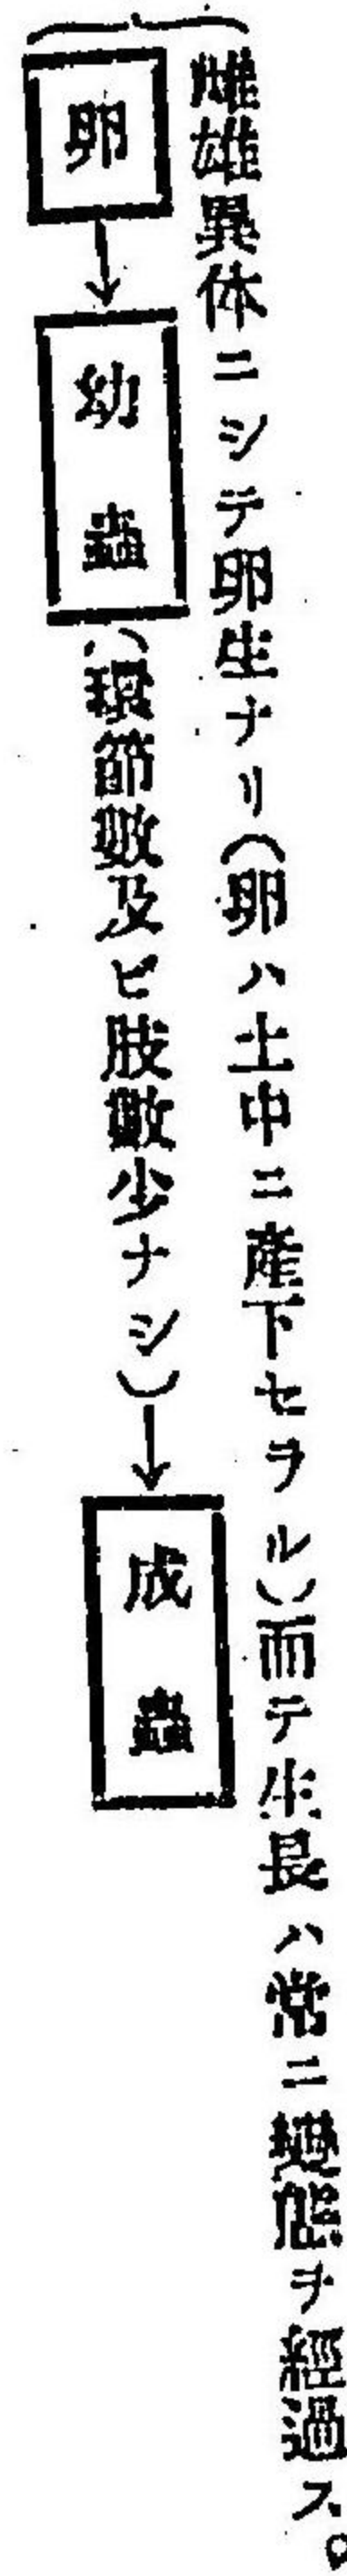 雌雄異体ニシテ卵生ナリ(卵ハ土中ニ産下セラル)而テ生長ハ常ニ變態ヲ經過ス。
卵→幼蟲(環節數及ビ肢數少ナシ)→成蟲